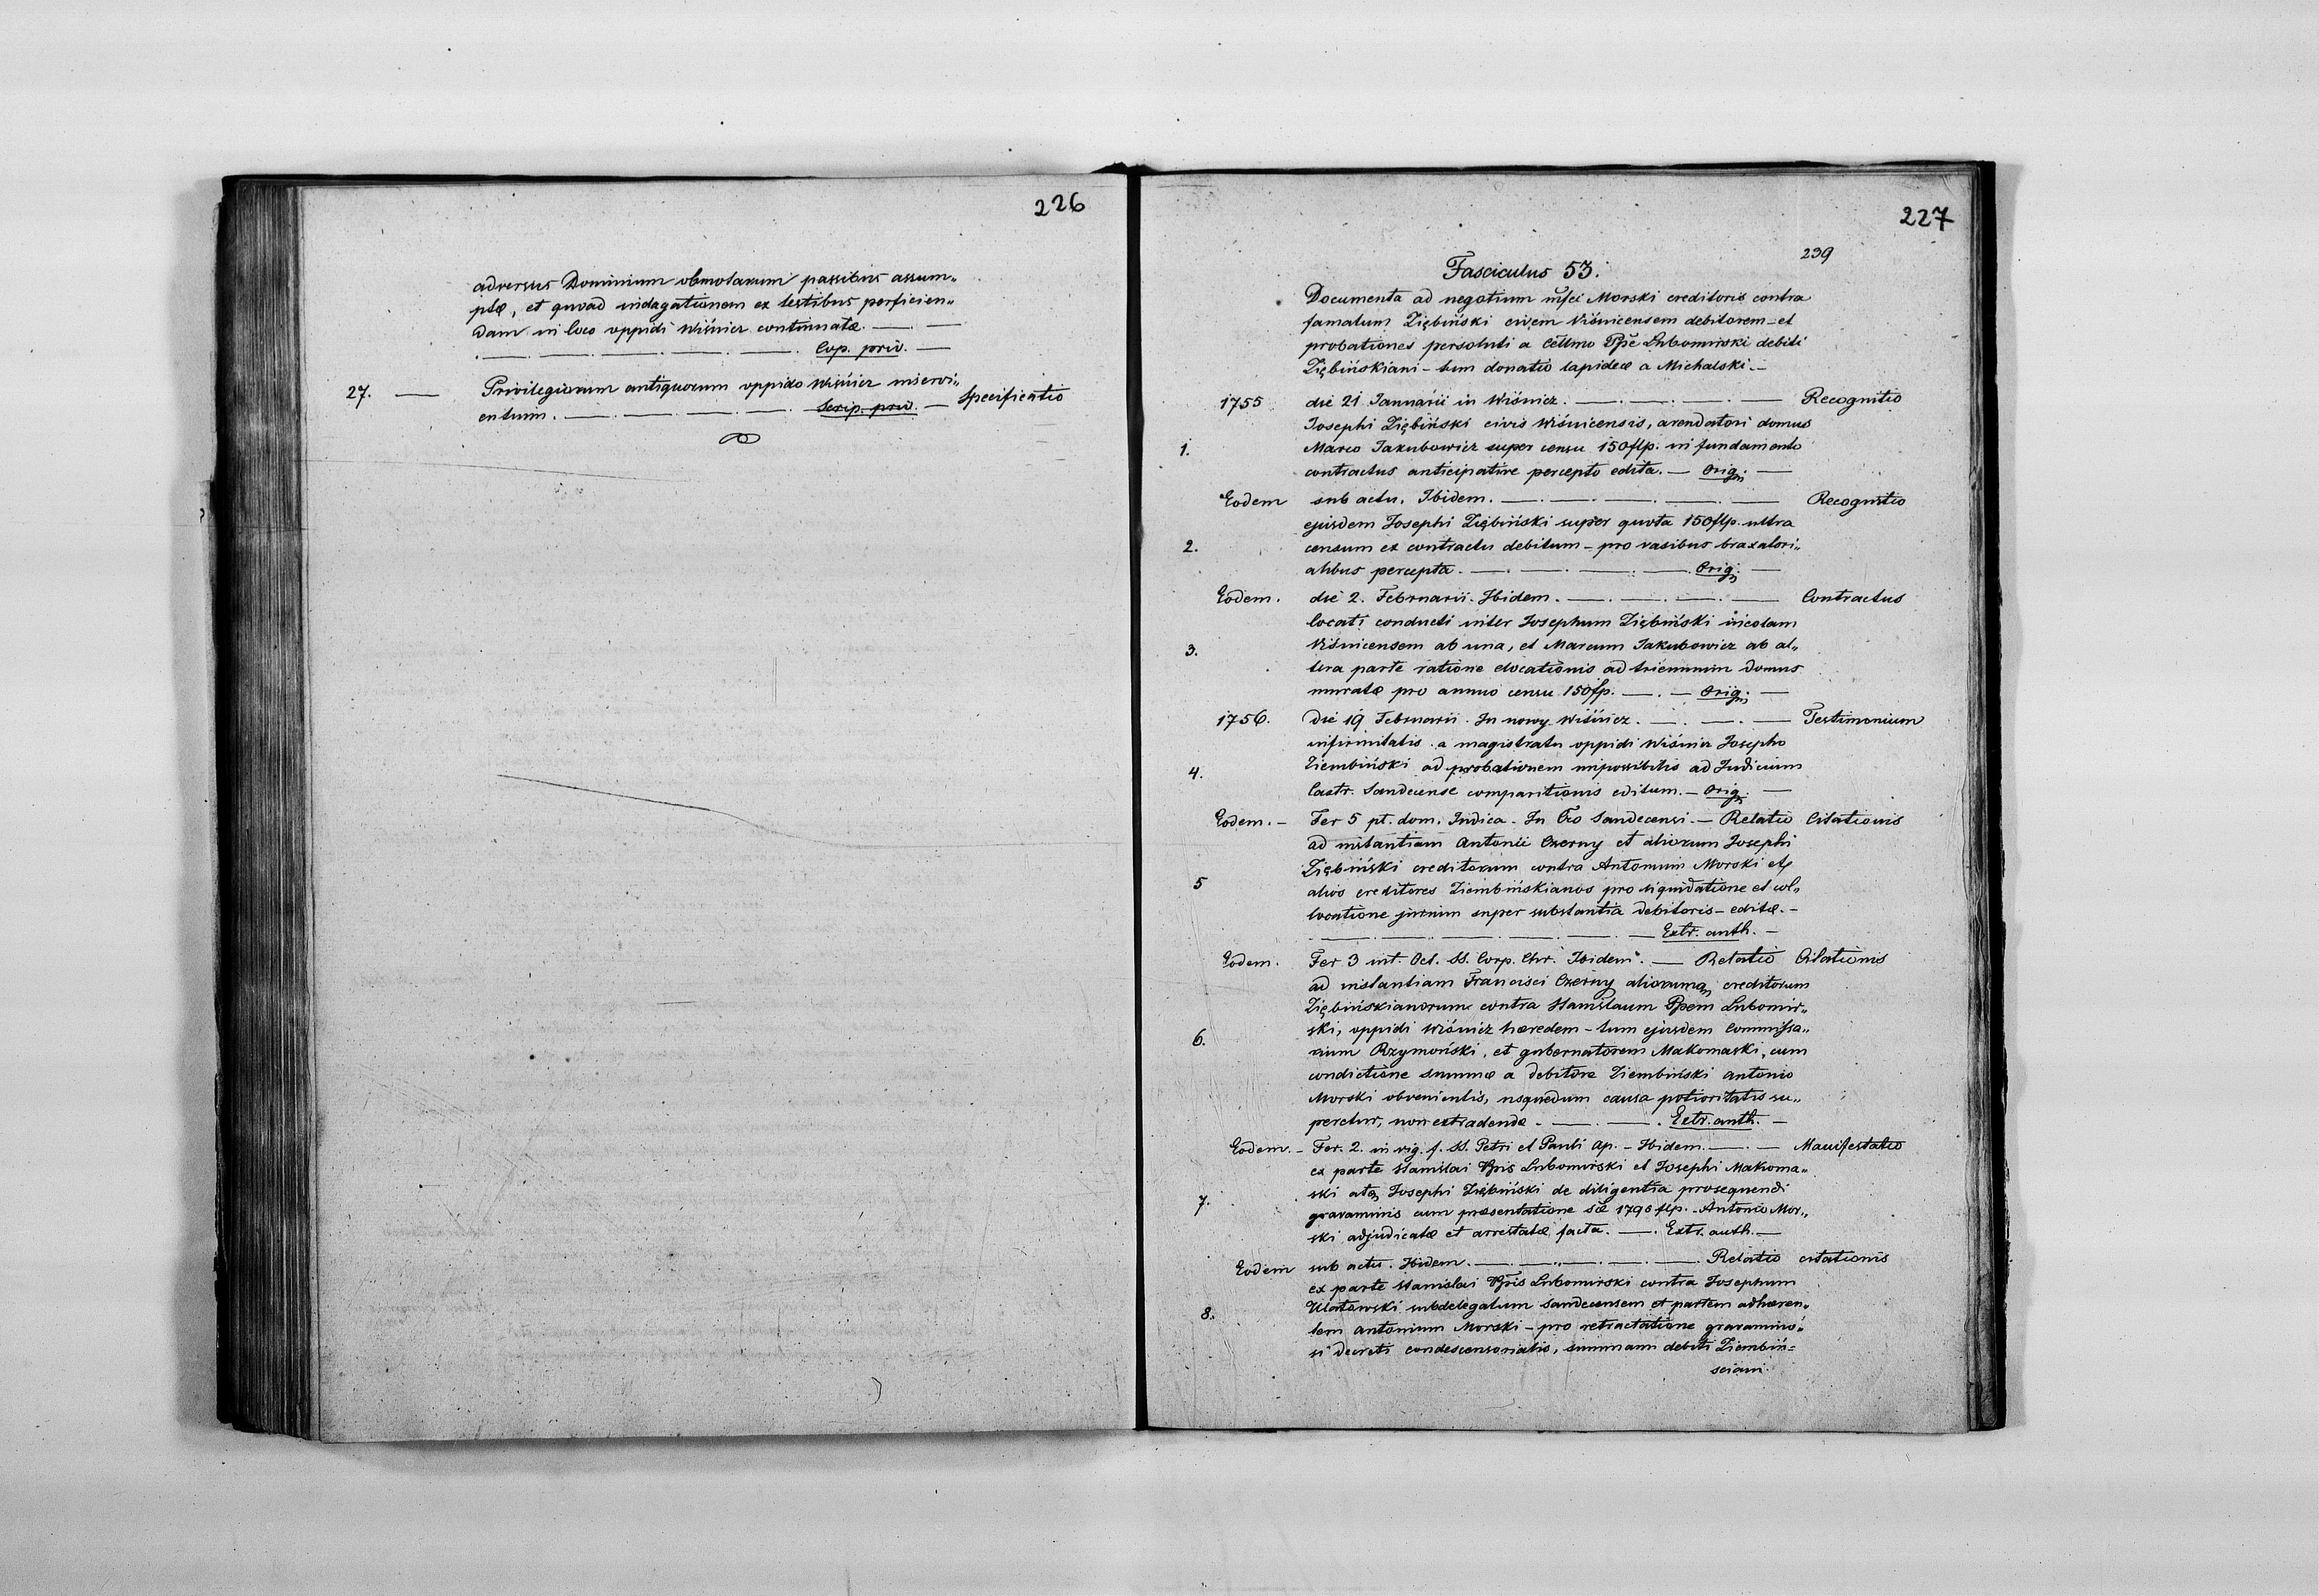 226
adversus Dominium obmotarum passibus assum„
ptæ, et quoad indagationem ex testibus perficien„
dam in loco oppidi Wiśnicz continuatæ. —. —
. —. —. —. —. —. Cop. priv. —
27. — Privilegiorum antiquorum oppido Wiśnicz inservi„
entium. —. —. —. —. Scrip. priv. — Specificatio
227
239
Fasciculus 53.
Documenta ad negotium Mfci Morski creditoris contra
famatum Ziębiński civem Wiśnicensem debitorem - et
probationes persoluti a Cellmo Ppe Lubomirski debiti
Ziębińskiani - tum donatio lapideæ a Michalski. -
1755 die 21 Januarii in Wiśnicz. —. —. —. — Recognitio
Josephi Ziębiński civis Wiśnicensis, arendatori domus
1. Marco Jakubowicz super censu 150 flp. in fundamento
contractus anticipative percepto edita. — Orig. —
Eodem sub actu. Ibidem. —. —. —. —. — Recognitio
ejusdem Josephi Ziębiński super quota 150 flp. ultra
2. censum ex contractu debitum - pro vasibus braxatori„
alibus percepta. —. —. —. —. Orig. —
Eodem. die 2. Februarii. Ibidem. —. —. —. — Contractus
locati conducti inter Josephum Ziębiński incolam
3. Wiśnicensem ab una, et Marcum Jakubowicz ab al„
tera parte ratione elocationis ad triennium domus
muratæ pro annuo censu 150 flp. —. — Orig. —
1756. Die 19 Februarii. In nowy Wiśnicz. —. —. — Testimonium
infirmitatis a magistratu oppidi Wiśnicz Josepho
4. Ziembiński ad probationem impossibilis ad Judicium
Castr. Sandecense comparitionis editum. — Orig. —
Eodem. — Fer 5 pt. dom. Judica. In Cro Sandecensi. — Relatio Citationis
ad instantiam Antonii Czerny et aliorum Josephi
Ziębiński creditorum contra Antonium Morski et
5 alios creditores Ziembińskianos pro liquidatione et col„
locatione jurium super substantia debitoris - editæ. -
. —. —. —. —. —. — Extr. auth. -
Eodem. Fer 3 int. Oct. SS. Corp. Chr. Ibidem. — Relatio Citationis
ad instantiam Francisci Czerny aliorumq creditorum
Ziębińskianorum contra Stanislaum Ppem Lubomir„
6. ski, oppidi Wiśnicz hæredem - tum ejusdem Commissa„
rium Rzymoński, et gubernatorem Makomaski, cum
condictione summæ a debitore Ziembiński Antonio
Morski obvenientis, usquedum causa potioritatis su„
peretur, non extradendæ. —. —. Extr. auth. —
Eodem. — Fer. 2. in vig. f. SS. Petri et Pauli Ap. - Ibidem. —. — Manifestatio
ex parte Stanislai Ppis Lubomirski et Josephi Makoma„
7. ski atq Josephi Ziębiński de diligentia prosequendi
gravaminis cum præsentatione sæ 1790 flp. - Antonio Mor„
ski adjudicatæ et arrestatæ facta. —. Extr. auth. —
Eodem sub actu. Ibidem. —. —. —. —. —. Relatio citationis
ex parte Stanislai Ppis Lubomirski contra Josephum
8. Ulatowski subdelegatum Sandecensem et partem adhæren„
tem Antonium Morski - pro retractatione gravamino„
si decreti condescensorialis, summam debiti Ziembiń=
sciani.